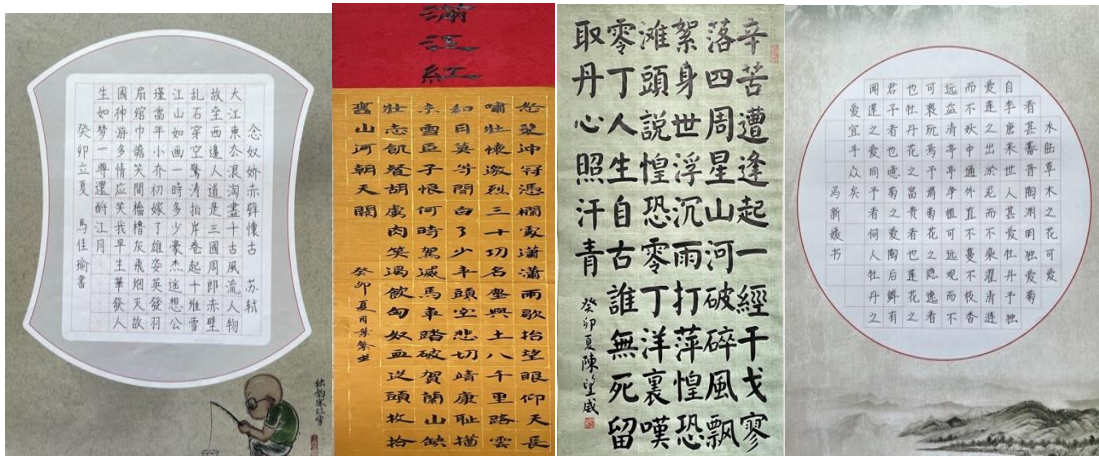 念奴娇赤壁懷古 苏轼
大江東去浪淘盡千古風流人物
故垒西邊人道是三國周郎赤壁
乱石穿空驚濤拍岸卷起千堆雪
江山如画一時多少豪杰遥想公
瑾當年小乔初嫁了雄姿英發羽
扇綸巾談笑間檣櫓灰飛烟灭故
國神游多情应笑我早生華發人
生如梦一尊還酹江月
癸卯立夏 馬佳瑜書
滿江紅
怒髮沖冠憑欄處瀟瀟雨歇抬望眼仰天長
嘯壯懷激烈三十功名塵與土八千里路雲
和月莫等閒白了少年頭空悲切靖康恥猶
未雪臣子恨何時駕滅馬車踏破賀蘭山缺
壯志飢餐胡虜肉笑渴飲匈奴血從頭收拾
舊山河朝天闕
癸卯夏月
辛苦遭逢起一經干戈寥
落四周星山河破碎風飄
絮身世浮沉雨打萍惶恐
灘頭說惶恐零丁洋裏嘆
零丁人生自古誰無死留
取丹心照汗青
癸卯夏陳
水陆草木之花可爱
者甚蕃晋陶渊明独爱菊
自李唐来世人甚爱牡丹予独
爱莲之出淤泥而不染濯清涟
而不妖中通外直不蔓不枝香
远益清亭亭净植可远观而不
可亵玩焉予谓菊花之隐逸者
也牡丹花之富贵者也莲花之
君子者也噫菊之爱陶后鲜有
闻莲之爱同予者何人牡丹之
爱宜乎众矣
冯新媛书